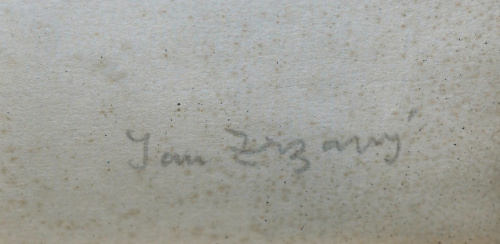 Jan Zrzavý